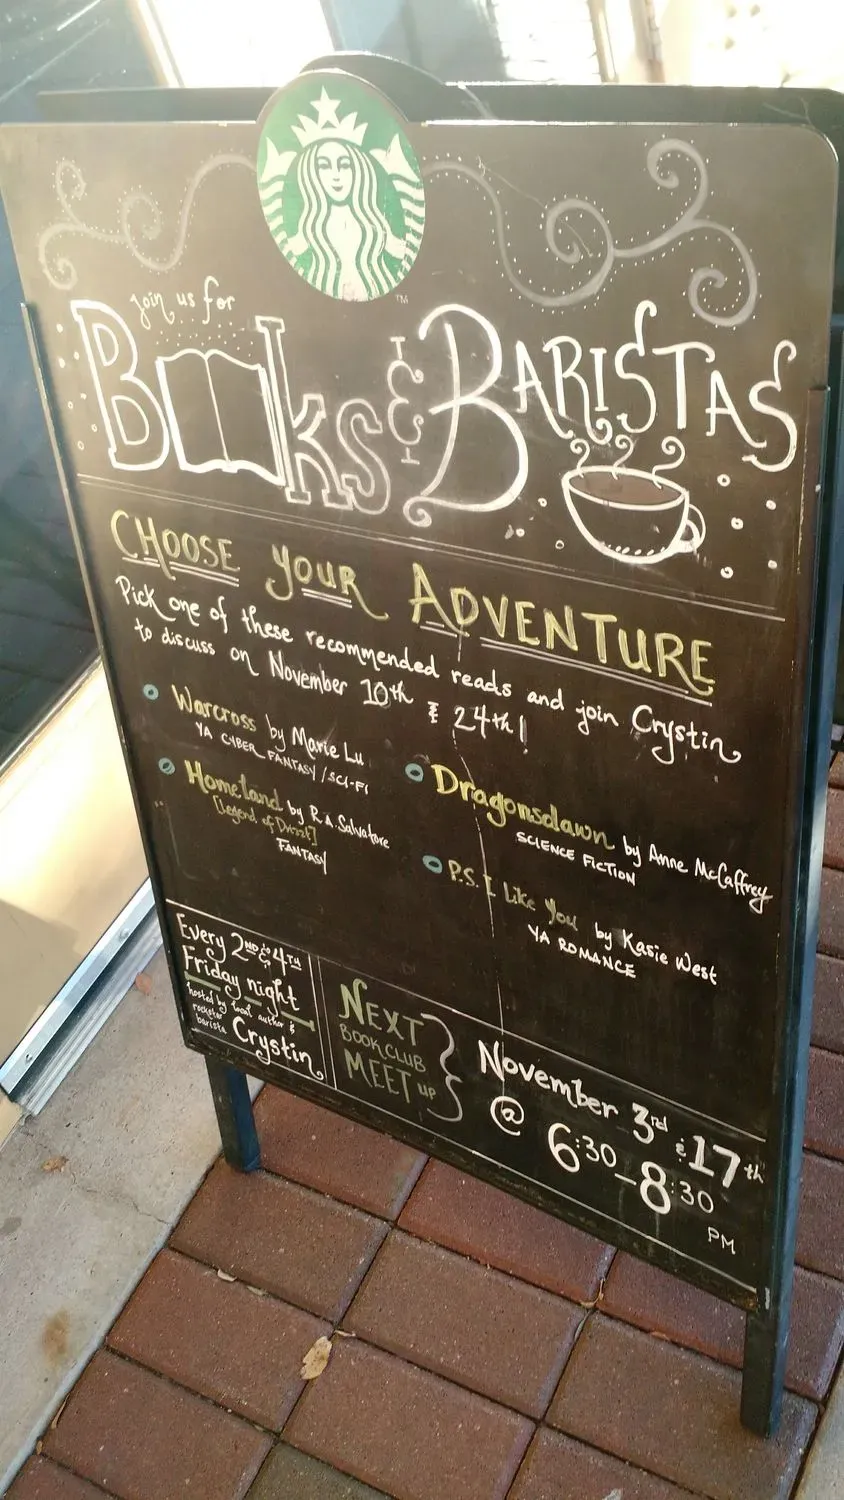 Join us for
Books & BARISTAS
CHOOSE YOUR ADVENTURE
Pick one of these recommended reads and join Crystin
to discuss on November 10th & 24th!
Warcross by Marie Lu
YA CYBER FANTASY/SCI-FI
Homeland by R.A. Salvatore
[Legend of Drizzt]
FANTASY
Dragonsdawn by Anne McCaffrey
SCIENCE FICTION
P.S. I Like You by Kasie West
YA ROMANCE
Every 2ND & 4TH
Friday night
hosted by local author &
rockstar
barista Crystin
NEXT
BOOK CLUB
MEET UP
November 3rd & 17th
@ 6:30-8:30
PM
TM